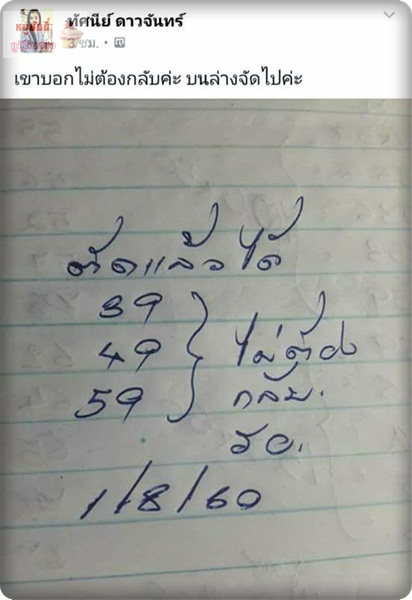 ทัศนีย์ ดาวจันทร์
3 ชม.
เขาบอกไม่ต้องกลับค่ะ บนล่างจัดไปค่ะ
ตัดแล้วได้
39
49
59
ไม่ต้อง
กลับ.
1/8/60